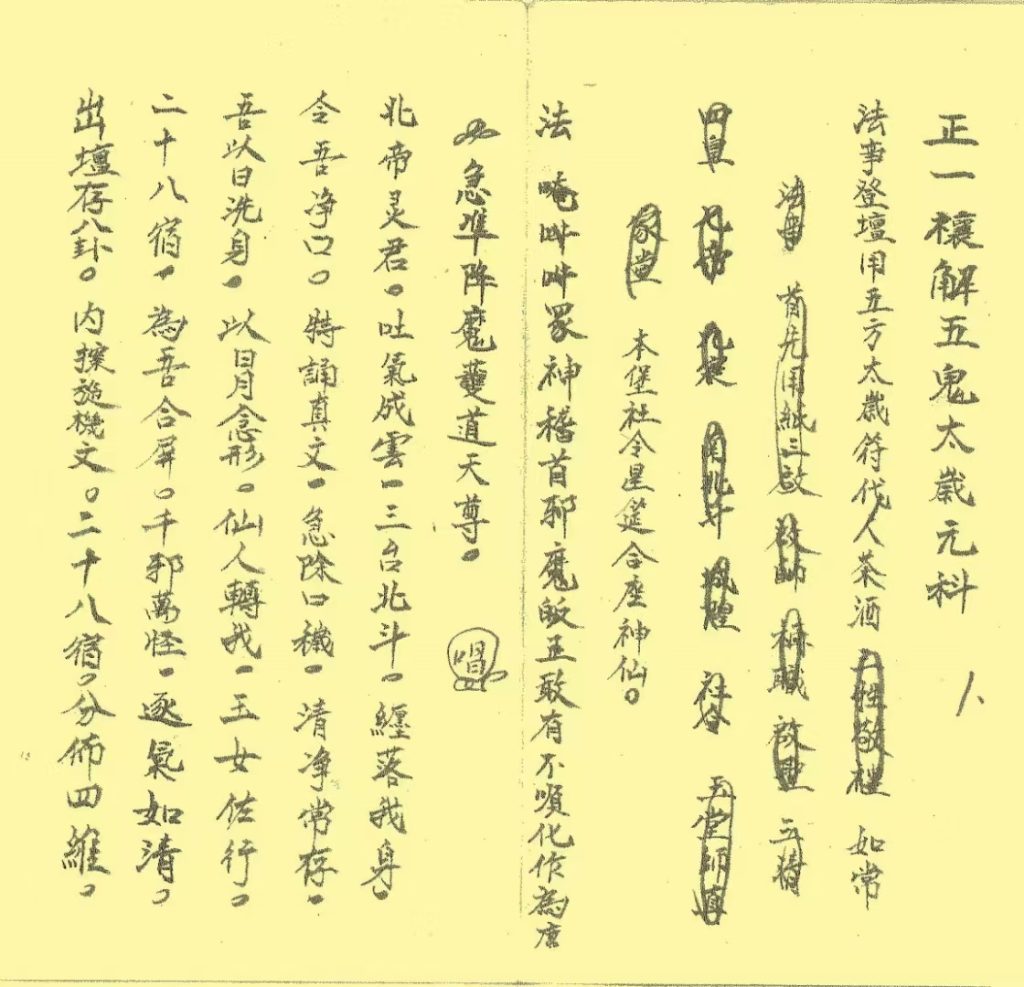 正一禳解五鬼太歲元科
法事登壇用五方太歲符代人茶酒 如常
首先用紙三啟 啟師 職 啟聖 三請
四皇 南北斗 城隍 社令 玉堂師真
家堂 本堡社令星筵合座神仙。
法 唵吽吽眾神稽首邪魔皈正敢有不順化作為塵
急準降魔護道天尊。 唱
北帝灵君。吐氣成雲。三台北斗。纏落我身。
令吾净口。特誦真文。急除口穢。清净常存。
吾以日洗身。以月念形。仙人轉我。玉女佐行。
二十八宿。為吾合屏。千邪萬怪。逐氣如清。
出壇存八卦。内探旋機文。二十八宿。分佈四維。